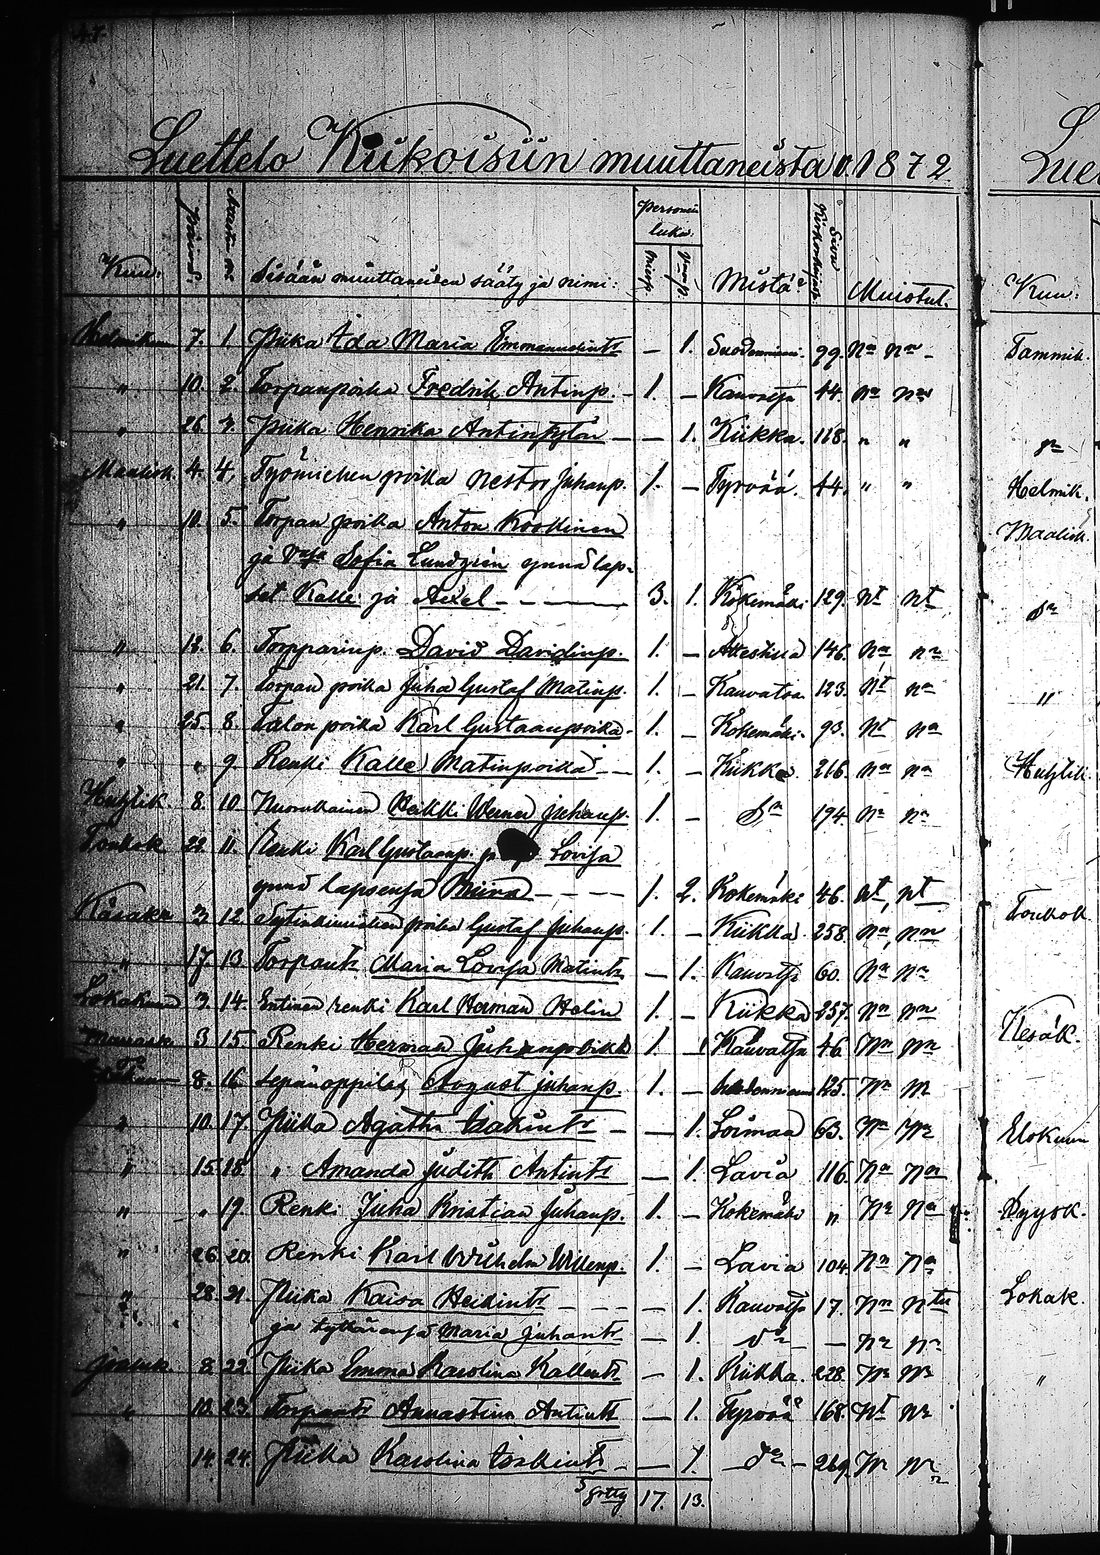 47.
Luettelo Kiikoisiin muuttaneista v. 1872
Personin luku.
Kuu. Päivä. Sisään muuttaneiden sääty ja nimi: Miesp. Vaimop. Mistä? Muistut.
Helmikuu 7. 1. Piika Ida Maria Emmanuelintr — 1. Suodenniemi. 99. na na
" 10. 2. Torpanpoika Fredrik Antinp. 1. — Kauvatsa 44. na na
" 26. 3. Piika Henrika Antintytär — 1. Kiikka. 118. " "
Maalisk. 4. 4. Työmiehen poika Nestor Juhanp. 1. — Tyrvää. 44. " "
" 10. 5. Torpan poika Anton Koollinen
ja Vmsa Sofia Lundgrén ynnä lap-
set Kalle ja Axel 3. 1. Kokemäki 129. nt nt
" 12. 6. Torpparinp. David Davidinp. 1. — 146. na na
" 21. 7. Torpan poika Juha Gustaf Matinp. 1. — Kauvatsa 123. nt na
" 25. 8. Talon poika Karl Gustaanpoika 1. — Kokemäki. 93. nt na
" " 9. Renki Kalle Matinpoika 1. — Kiikka. 216. na na
Huhtik. 8. 10. Nuorukainen Heikki Werner Juhanp. 1. — do 194. na na
Toukok. 22. 11. Renki Karl Gustaanp. ja Lovisa
ynnä lapsensa 1. 2. Kokemäki 46. nt nt
Kesäku 3 12. poika Gustaf Juhanp. 1. — Kiikka 258. na na
" 17. 13. Torpantr Maria Lovisa Matintr — 1. Kauvatsa 60. na na
Lokakuu 3. 14. Entinen renki Karl Herman Holin 1. — Kiikka 257. na na
Marrask. 3 15. Renki Herman Juhanpoika 1. — Kauvatsa 46. na na
8. 16. Sepänoppilas August Juhanp. 1. — Suodenniemi 125. na na
" 10. 17. Piika Agatha Isakintr — 1. Loimaa 63. na na
" 15. 18. " Amanda Judith Antintr — 1. Lavia 116. na na
" " 19. Renki Juha Kristian Juhanp. 1. — Kokemäki " na na
" 26. 20. Renki Karl Wilhelm Willenp. 1. — Lavia 104. na na
" 28. 21. Piika Kaisa Heikintr — 1. Kauvatsa 17. na
ja tyttärensä Maria Juhantr — 1. do — na na
Jouluk. 8. 22. Piika Emma Karolina Kallentr — 1. Kiikka. 228. na na
" 10. 23. Torpantr Annastina Antintr — 1. Tyrvää 168. nt na
14. 24. Piika Karolina Iisakintr — 1. do 269. na na
17. 13.
Kuu.
Tammik.
Helmik.
Maalisk.
do
"
Huhtik.
Toukok.
Kesäk.
Elokuu
Syysk.
Lokak.
"